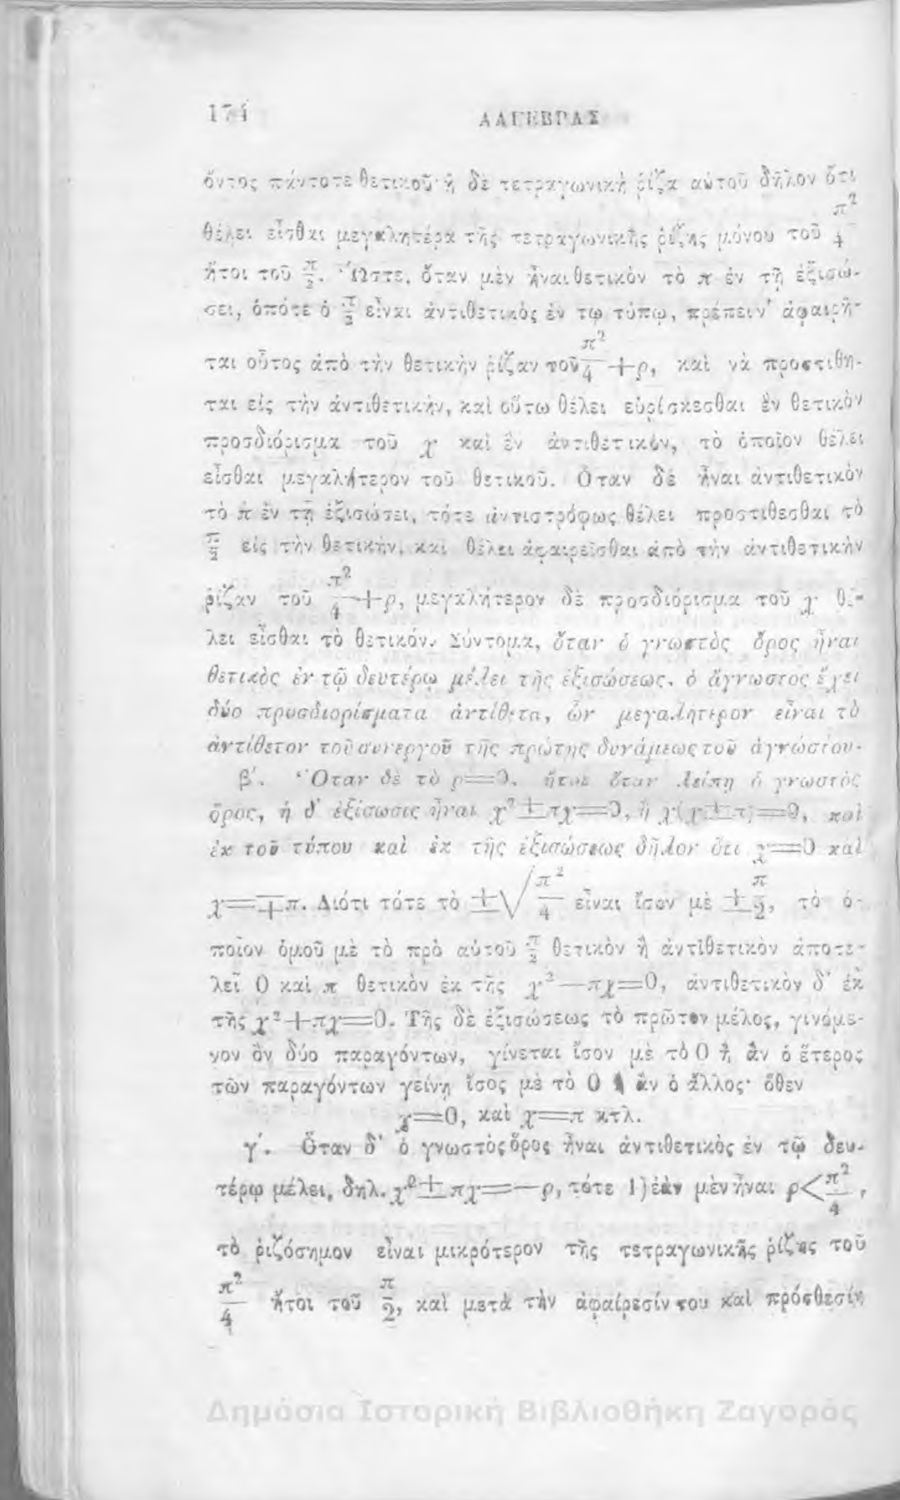 174 ΑΛΓΕΒΡΑΣ
ὄντος πάντοτε θετικοῦ· ἡ δὲ τετραγωνικὴ ῥίζα αὐτοῦ δῆλον ὅτι
θέλει εἶσθαι μεγαλητέρα τῆς τετραγωνικῆς ῥίζης μόνου τοῦ π²/4
ἤτοι τοῦ π/2. Ὥστε, ὅταν μὲν ἦναι θετικὸν τὸ π ἐν τῇ ἐξισώ-
σει, ὁπότε ὁ π/2 εἶναι ἀντιθετικὸς ἐν τῳ τύπῳ, πρέπει ν' ἀφαιρῆ-
ται οὗτος ἀπὸ τὴν θετικὴν ῥίζαν τοῦ π²/4 +ρ, καὶ νὰ προστιθῆ-
ται εἰς τὴν ἀντιθετικὴν, καὶ οὕτω θέλει εὑρίσκεσθαι ἓν θετικὸν
προσδιόρισμα τοῦ χ καὶ ἓν ἀντιθετικὸν, τὸ ὁποῖον θέλει
εἶσθαι μεγαλήτερον τοῦ θετικοῦ. Ὅταν δὲ ἦναι ἀντιθετικὸν
τὸ π ἐν τῇ ἐξισώσει, τότε ἀντιστρόφως θέλει προστιθεσθαι τὸ
π/2 εἰς τὴν θετικὴν, καὶ θέλει ἀφαιρεῖσθαι ἀπὸ τὴν ἀντιθετικὴν
ῥίζαν τοῦ π²/4 +ρ, μεγαλήτερον δὲ προσδιόρισμα τοῦ χ θέ-
λει εἶσθαι τὸ θετικόν. Σύντομα, ὅταν ὁ γνωστὸς ὅρος ἦναι
θετικὸς ἐν τῷ δευτέρῳ μέλει τῆς ἐξισώσεως, ὁ ἄγνωστος ἔχει
δύο προσδιορίσματα ἀντίθετα, ὧν μεγαλήτερον εἶναι τὸ
ἀντίθετον τοῦ συνεργοῦ τῆς πρώτης δυνάμεως τοῦ ἀγνώστου.
β'. Ὅταν δὲ τὸ ρ=0, ἤτοι ὅταν λείπῃ ὁ γνωστὸς
ὅρος, ἡ δ' ἐξίσωσις ἦναι χ²±πχ=0, ἢ χ(χ±π)=0, καὶ
ἐκ τοῦ τύπου καὶ ἐκ τῆς ἐξισώσεως δῆλον ὅτι χ=0 καὶ
χ=∓π. Διότι τότε τὸ ±√π²/4 εἶναι ἴσον μὲ ±π/2, τὸ ὁ-
ποῖον ὁμοῦ μὲ τὸ πρὸ αὐτοῦ π/2 θετικὸν ἢ ἀντιθετικὸν ἀποτε-
λεῖ 0 καὶ π θετικὸν ἐκ τῆς χ²—πχ=0, ἀντιθετικὸν δ' ἐκ
τῆς χ²+πχ=0. Τῆς δὲ ἐξισώσεως τὸ πρῶτον μέλος, γινόμε-
νον ὂν δύο παραγόντων, γίνεται ἴσον μὲ τὸ 0 ἢ ἂν ὁ ἕτερος
τῶν παραγόντων γείνῃ ἴσος μὲ τὸ 0 ἢ ἂν ὁ ἄλλος· ὅθεν
χ=0, καὶ χ=π κτλ.
γ'. Ὅταν δ' ὁ γνωστὸς ὅρος ἦναι ἀντιθετικὸς ἐν τῷ δευ-
τέρῳ μέλει, δηλ. χ²±πχ=—ρ, τότε 1) ἐὰν μὲν ἦναι ρ<π²/4,
τὸ ῥιζόσημον εἶναι μικρότερον τῆς τετραγωνικῆς ῥίζης τοῦ
π²/4 ἤτοι τοῦ π/2, καὶ μετὰ τὴν ἀφαίρεσίν του καὶ πρόσθεσίν
Δημόσια Ιστορική Βιβλιοθήκη Ζαγοράς